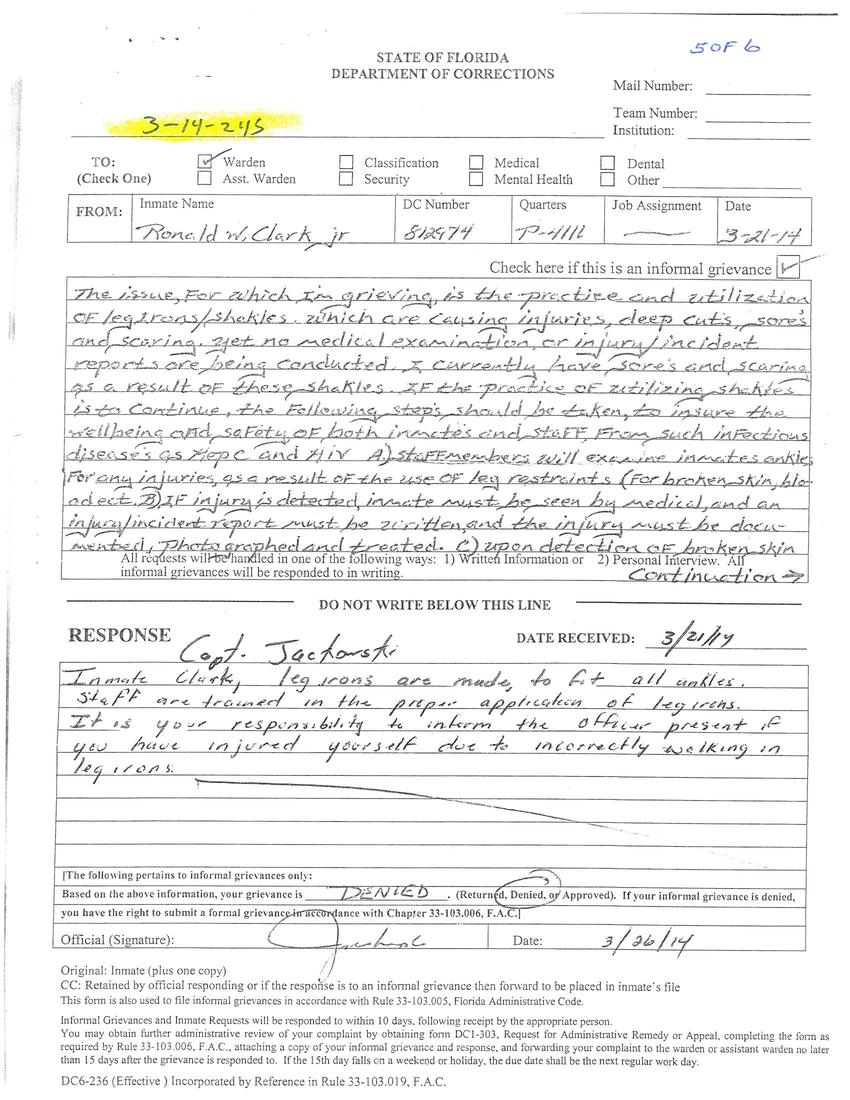 5 OF 6
STATE OF FLORIDA
DEPARTMENT OF CORRECTIONS
Mail Number:
Team Number:
Institution:
3-14-245
TO: Warden Classification Medical Dental
(Check One) Asst. Warden Security Mental Health Other
FROM: Inmate Name DC Number Quarters Job Assignment Date
Ronald W. Clark jr 812974 P-4111 3-21-14
Check here if this is an informal grievance
The issue, For which I'm grieving, is the practice and utilization
OF leg Irons/shakles. which are causing injuries, deep cuts, sore's
and scaring. yet no medical examination, or injury/incident
reports are being conducted. I currently have sore's and scaring
as a result OF these shakles. IF the practice OF utilizing shakles
is to continue, the Following step's should be taken, to insure the
wellbeing and saFety OF both inmate's and staFF, From such inFectious
disease's as Hep C and HIV A) staFF members will examine inmates ankles
For any injuries, as a result OF the use OF leg restraints (For broken skin, blo-
od ect. B) IF injury is detected, inmate must be seen by medical, and an
injury/incident report must be written, and the injury must be docu-
mented, photographed and treated. C) upon detection OF broken skin
All requests will be handled in one of the following ways: 1) Written Information or 2) Personal Interview. All
informal grievances will be responded to in writing.
Continuation →
DO NOT WRITE BELOW THIS LINE
RESPONSE Capt. Jackowski DATE RECEIVED: 3/21/14
Inmate Clark, leg irons are made, to fit all ankles.
Staff are trained in the proper application of leg irons.
It is your responsibility to inform the officer present if
you have injured yourself due to incorrectly walking in
leg irons.
[The following pertains to informal grievances only:
Based on the above information, your grievance is DENIED. (Returned, Denied, or Approved). If your informal grievance is denied,
you have the right to submit a formal grievance in accordance with Chapter 33-103.006, F.A.C.]
Official (Signature): Date: 3/26/14
Original: Inmate (plus one copy)
CC: Retained by official responding or if the response is to an informal grievance then forward to be placed in inmate's file
This form is also used to file informal grievances in accordance with Rule 33-103.005, Florida Administrative Code.
Informal Grievances and Inmate Requests will be responded to within 10 days, following receipt by the appropriate person.
You may obtain further administrative review of your complaint by obtaining form DC1-303, Request for Administrative Remedy or Appeal, completing the form as
required by Rule 33-103.006, F.A.C., attaching a copy of your informal grievance and response, and forwarding your complaint to the warden or assistant warden no later
than 15 days after the grievance is responded to. If the 15th day falls on a weekend or holiday, the due date shall be the next regular work day.
DC6-236 (Effective ) Incorporated by Reference in Rule 33-103.019, F.A.C.